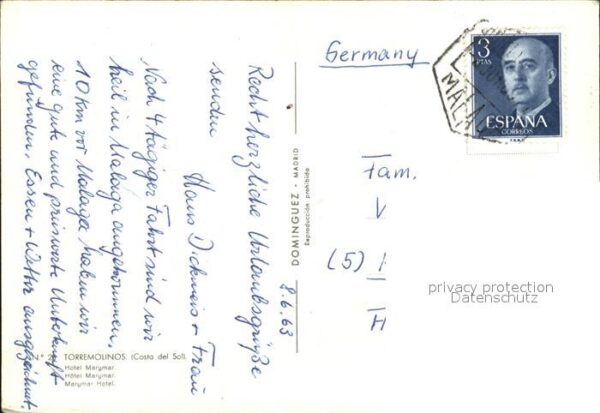 Recht herzliche Urlaubsgrüße
senden
Hans Dickmeis + Frau
Nach 4 tägiger Fahrt sind wir
heil in Malaga angekommen,
10 Km vor Malaga haben wir
eine gute und preiswerte Unterkunft
gefunden. Essen + Wetter ausgezeichnet.
8.6.63
Nº 2
TORREMOLINOS. (Costa del Sol).
Hotel Marymar.
Hôtel Marymar.
Marymar Hotel.
DOMINGUEZ - MADRID
Reproducción prohibida
Germany
3
PTAS
ESPAÑA
CORREOS
MALA
Fam.
V
(5) I
H
privacy protection
Datenschutz